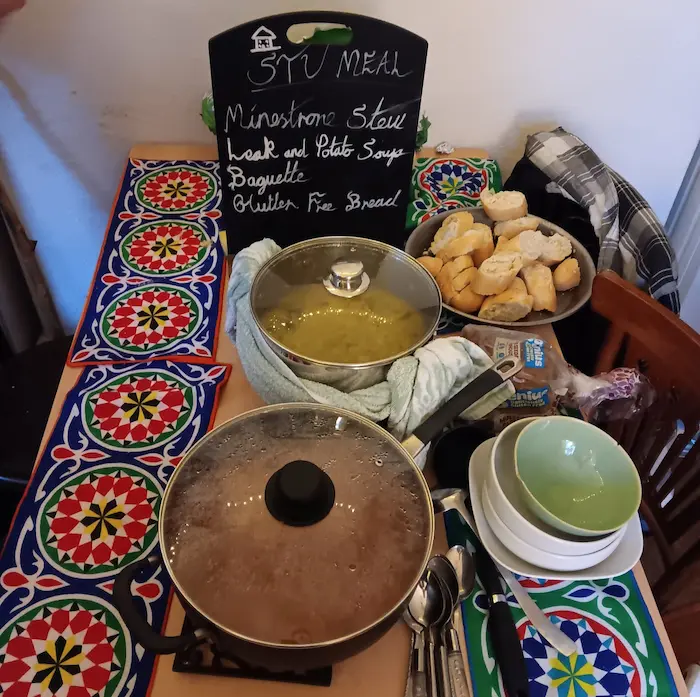 STU MEAL
Minestrone Stew
Leak and Potato Soup
Baguette
Glutten Free Bread
Genius